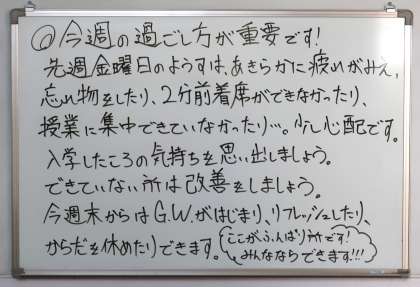 ◎今週の過ごし方が重要です!
先週金曜日のようすは、あきらかに疲れがみえ、
忘れ物をしたり、2分前着席ができなかったり、
授業に集中できていなかったり…。少し心配です。
入学したころの気持ちを思い出しましょう。
できていない所は改善をしましょう。
今週末からはG.W.がはじまり、リフレッシュしたり、
からだを休めたりできます。
ここが、ふんばり所です!
みんなならできます!!!